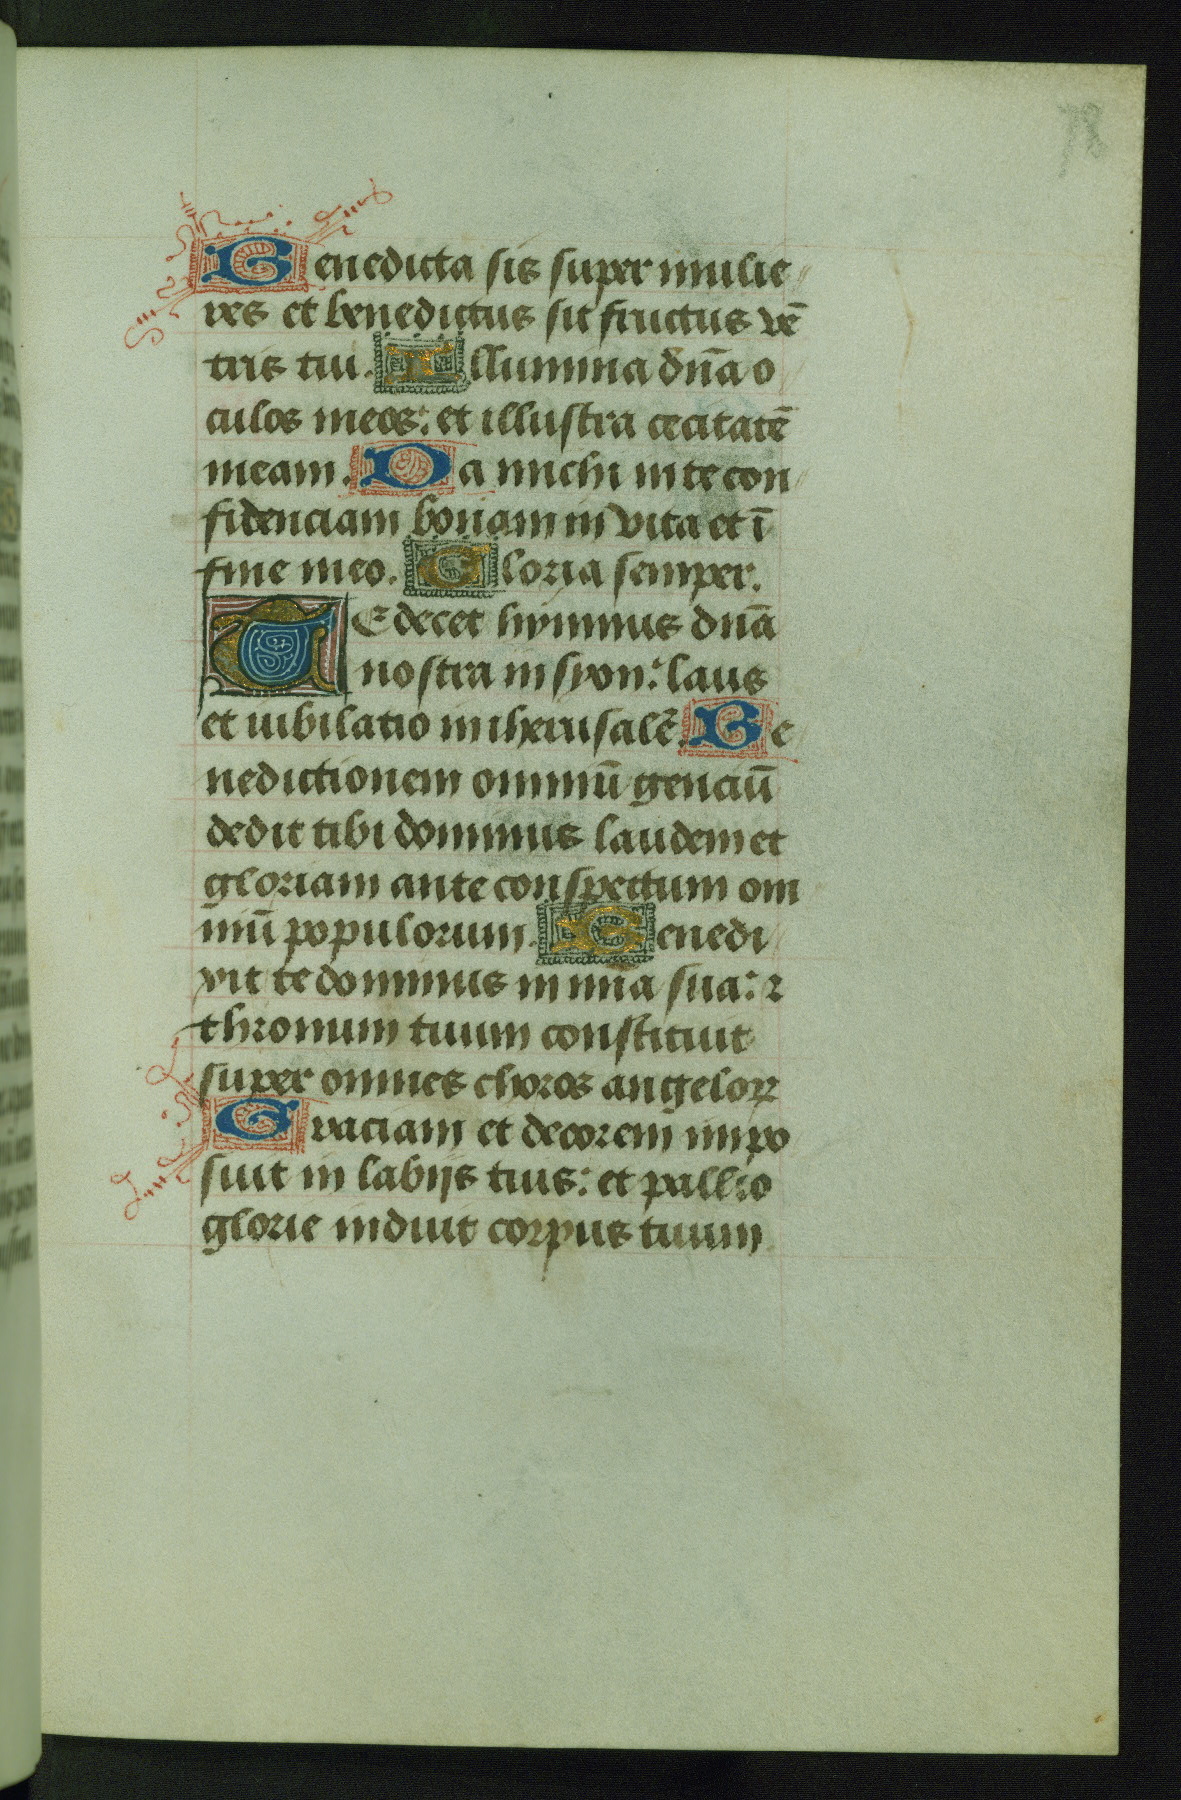 78
Benedicta sis super mulie
res et benedictus sit fructus vē
tris tui. Illumina dn̄a o
culos meos: et illustra cecitatē
meam. Da michi in te con
fidenciam bonam in vita et ī
fine meo. Gloria semper.
TE decet hymnus dn̄a
nostra in syon: laus
et iubilatio in iherusalē. Be
nedictionem omniū genciū
dedit tibi dominus laudem et
gloriam ante conspectum om
niū populorum. Benedi
xit te dominus in mīa sua: ⁊
thronum tuum constituit
super omnes choros angeloꝝ
Graciam et decorem impo
suit in labijs tuis: et pallio
glorie induit corpus tuum